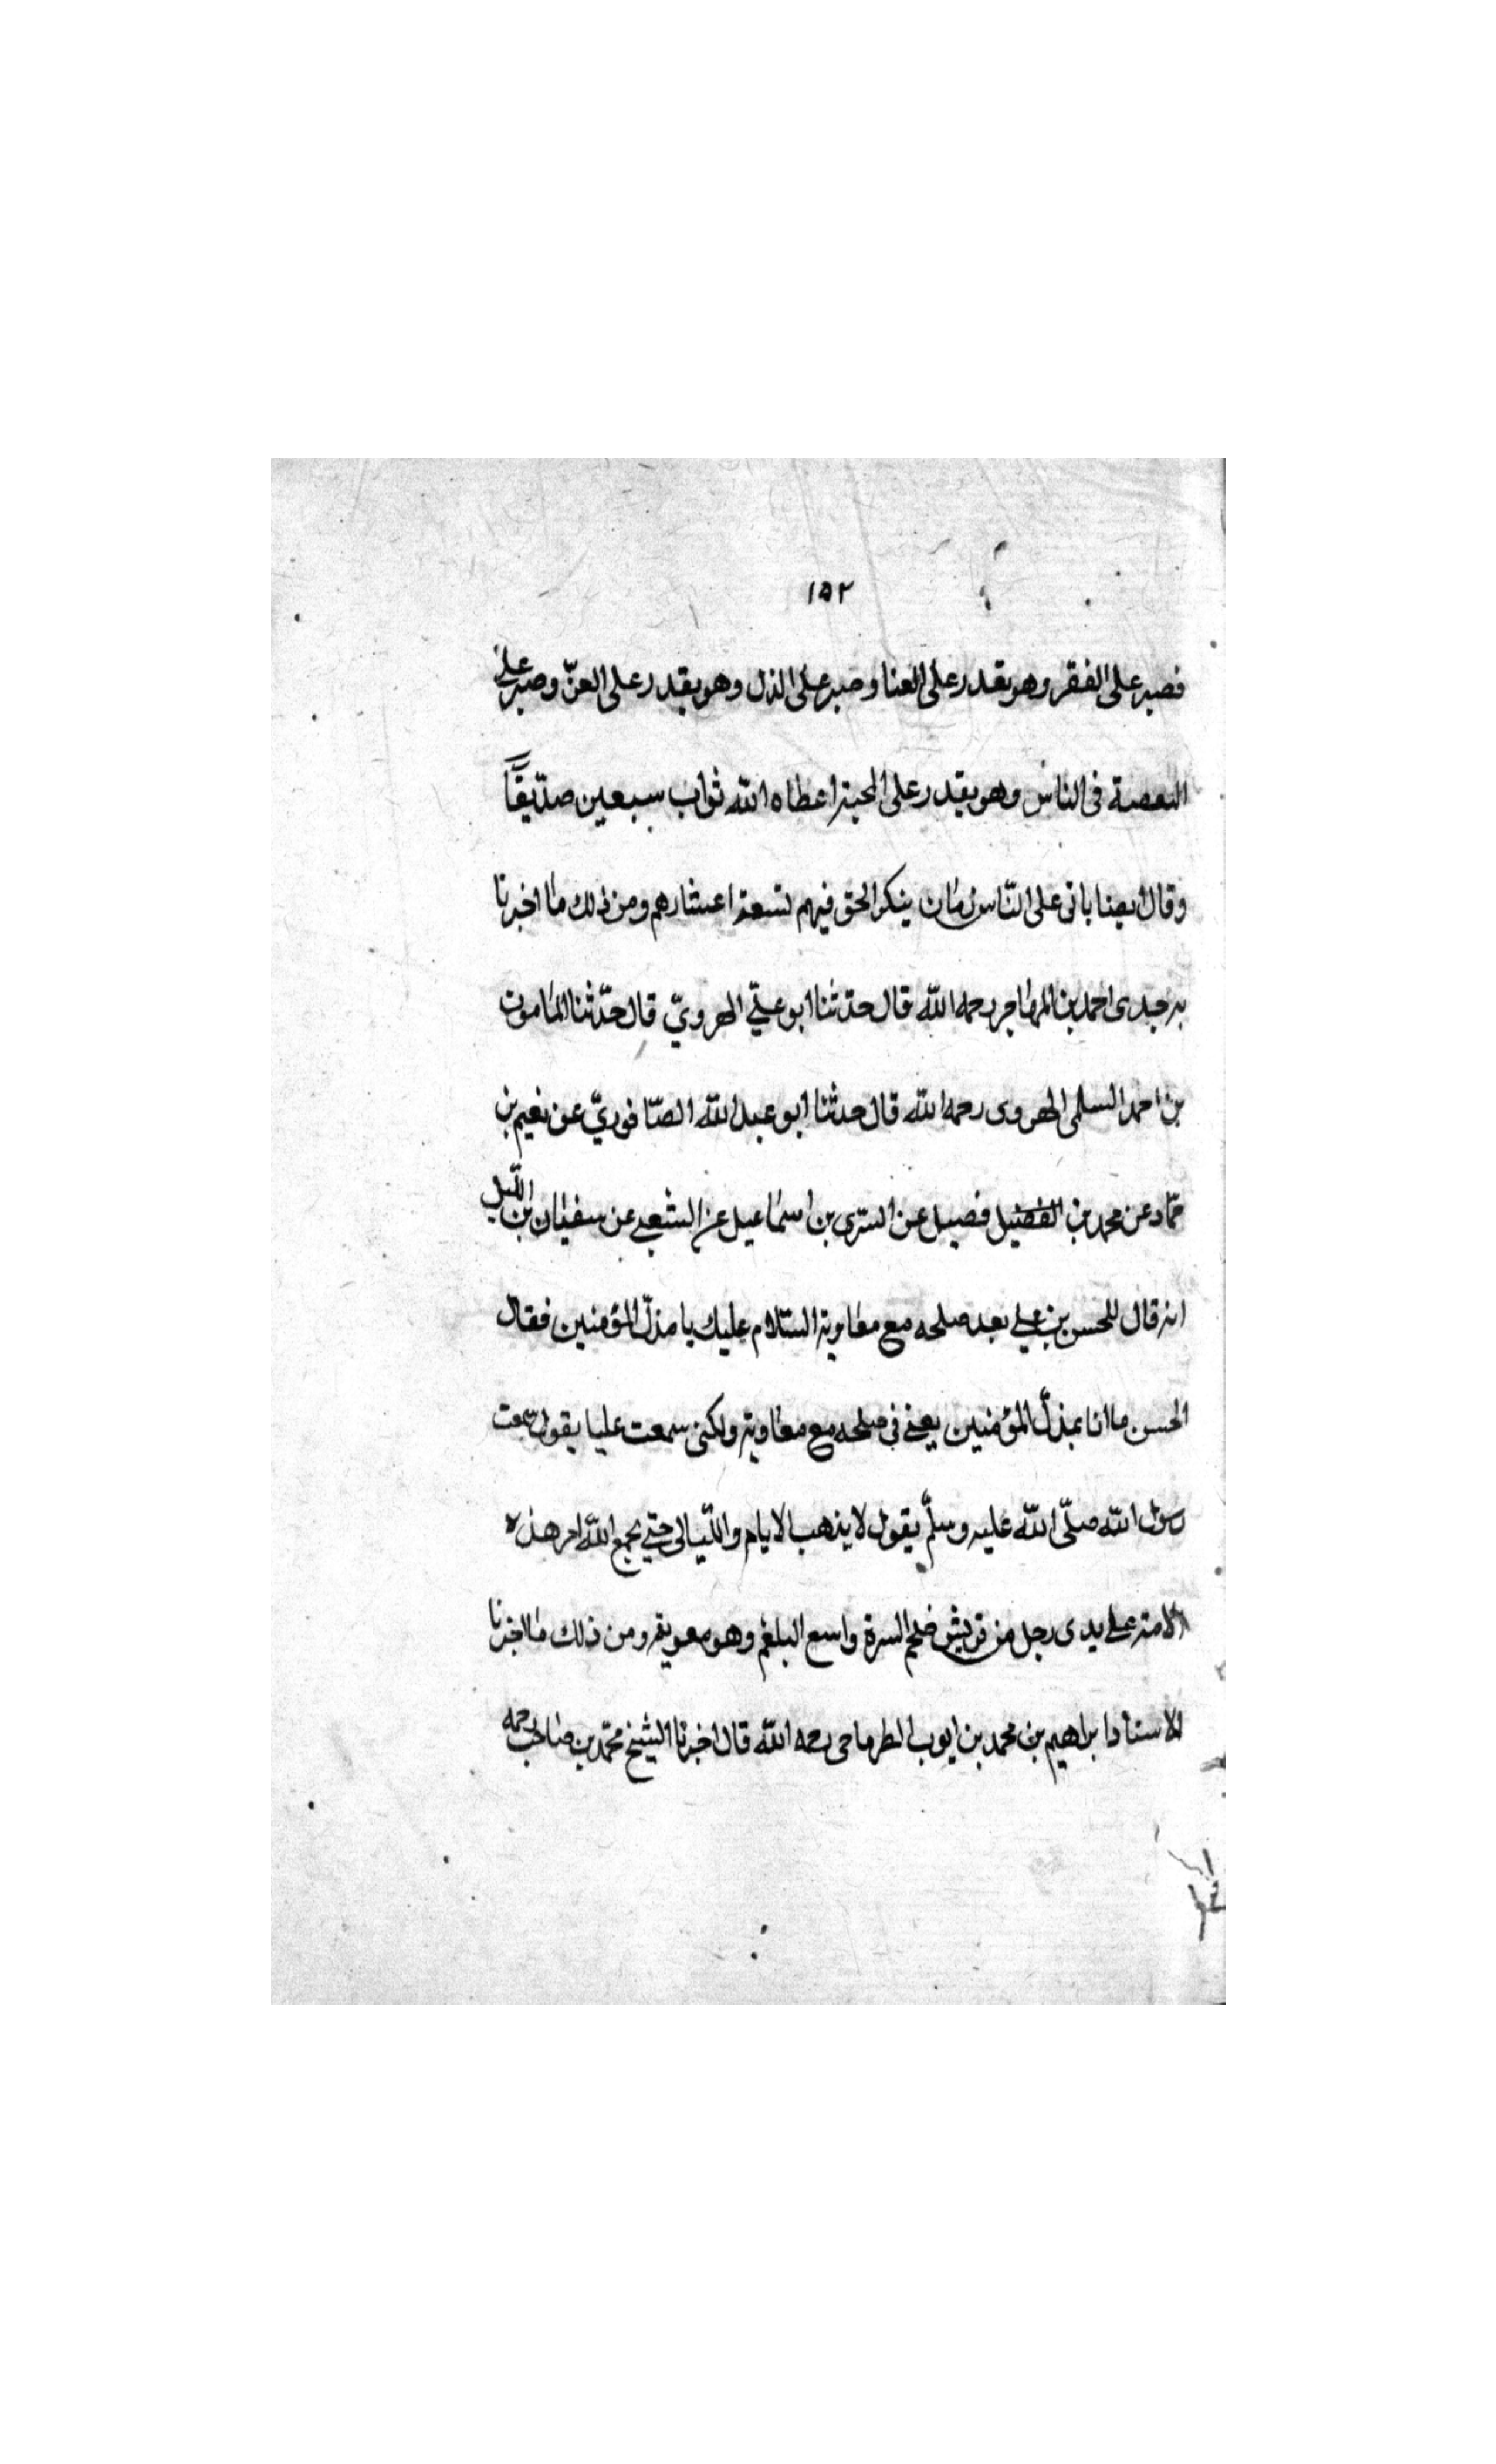 ١٥٢
فصبر على الفقر وهو يقدر على العنا وصبر على الذل وهو يقدر على العزّ وصبر على
البعصة فى الناس وهو يقدر على المحبة اعطاه الله ثواب سبعين صدّيقًا
وقال ايضا ياتى على النّاس زمان ينكر الحق فيهم تسعة اعشارهم ومن ذلك ما اخبرنا
به جدى احمد بن المهاجر رحمه الله قال حدّثنا ابو علىّ الهروىّ قال حدّثنا المامون
بن احمد السلمى الهروى رحمه الله قال حدثنا ابو عبد الله الصّافورىّ عن نعيم بن
حمّاد عن محمد بن الفضيل فصيل عن السّرى بن اسماعيل عن الشعبى عن سفيان بن اللّيل
انه قال للحسن بن على بعد صلحه مع معاوية السّلام عليك يا مذلّ المؤمنين فقال
الحسن ما انا بمذلّ المؤمنين يعنى فى صلحه مع معاوية ولكنى سمعت عليا يقول سمعت
رسول الله صلّى الله عليه وسلّم يقول لا يذهب الايام واللّيالى حتى يجمع الله امر هذه
الامة على يدى رجل من قريش ضخم السرة واسع البلغم وهو معوية ومن ذلك ما اخبرنا
الاستاد ابراهيم بن محمد بن ايوب الطرماحى رحمه الله قال اخبرنا الشيخ محمّد بن صاحب رحمه